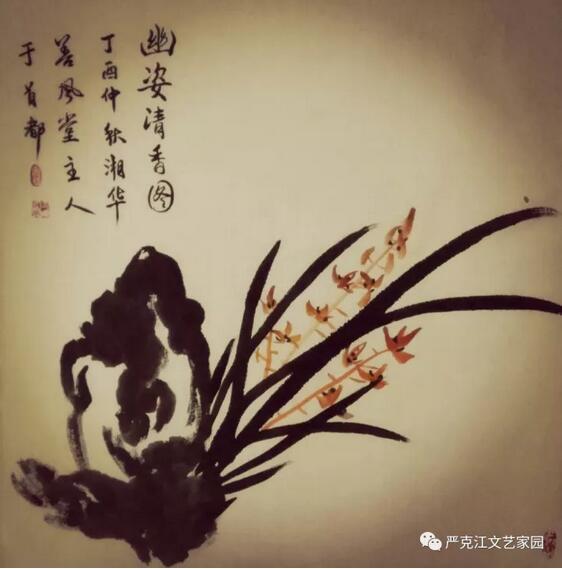 幽姿清香图
丁酉仲秋湘华
善风堂主人
于首都
严克江文艺家园